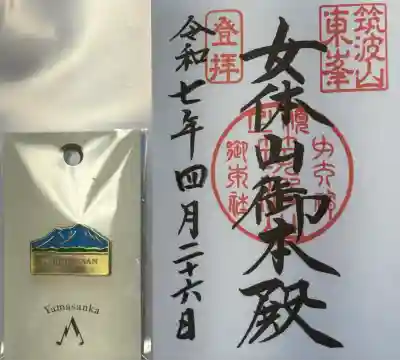 筑波山
東峯
登拝
女体山御本殿
令和七年四月二十六日
Yamasanka